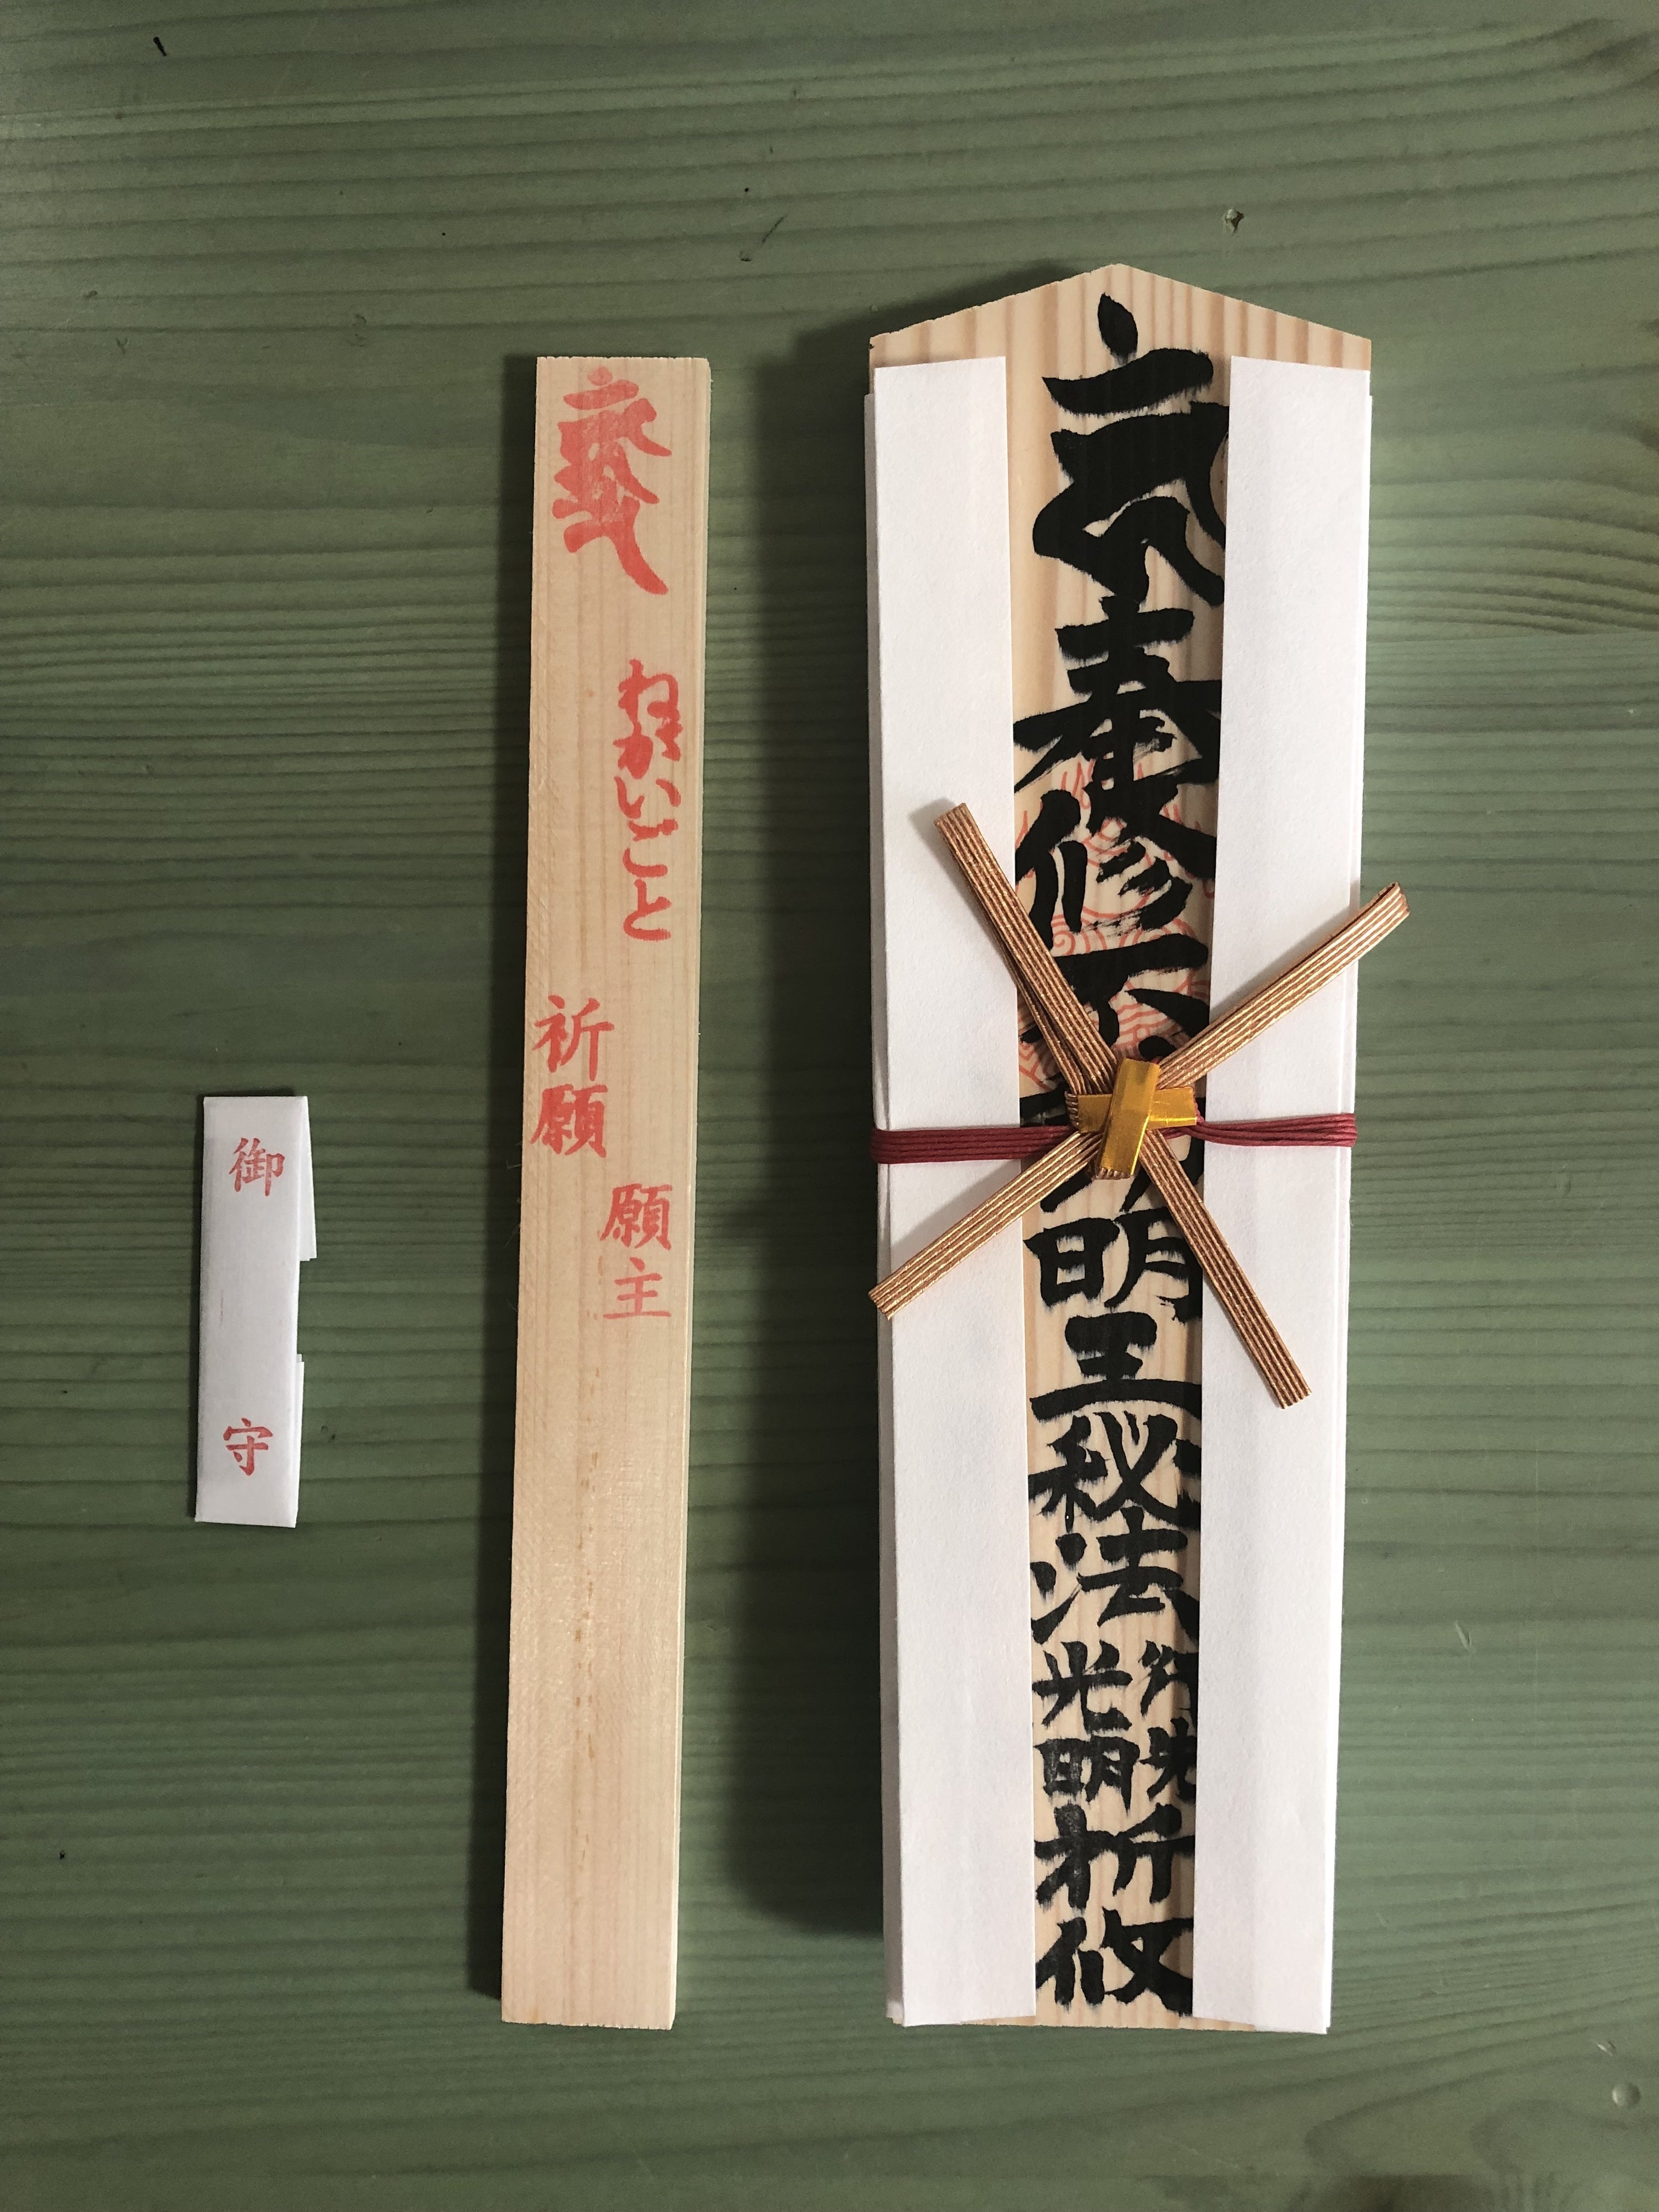 奉修不動明王秘法
光明
祈攸
ねがいごと
願主
祈願
御守